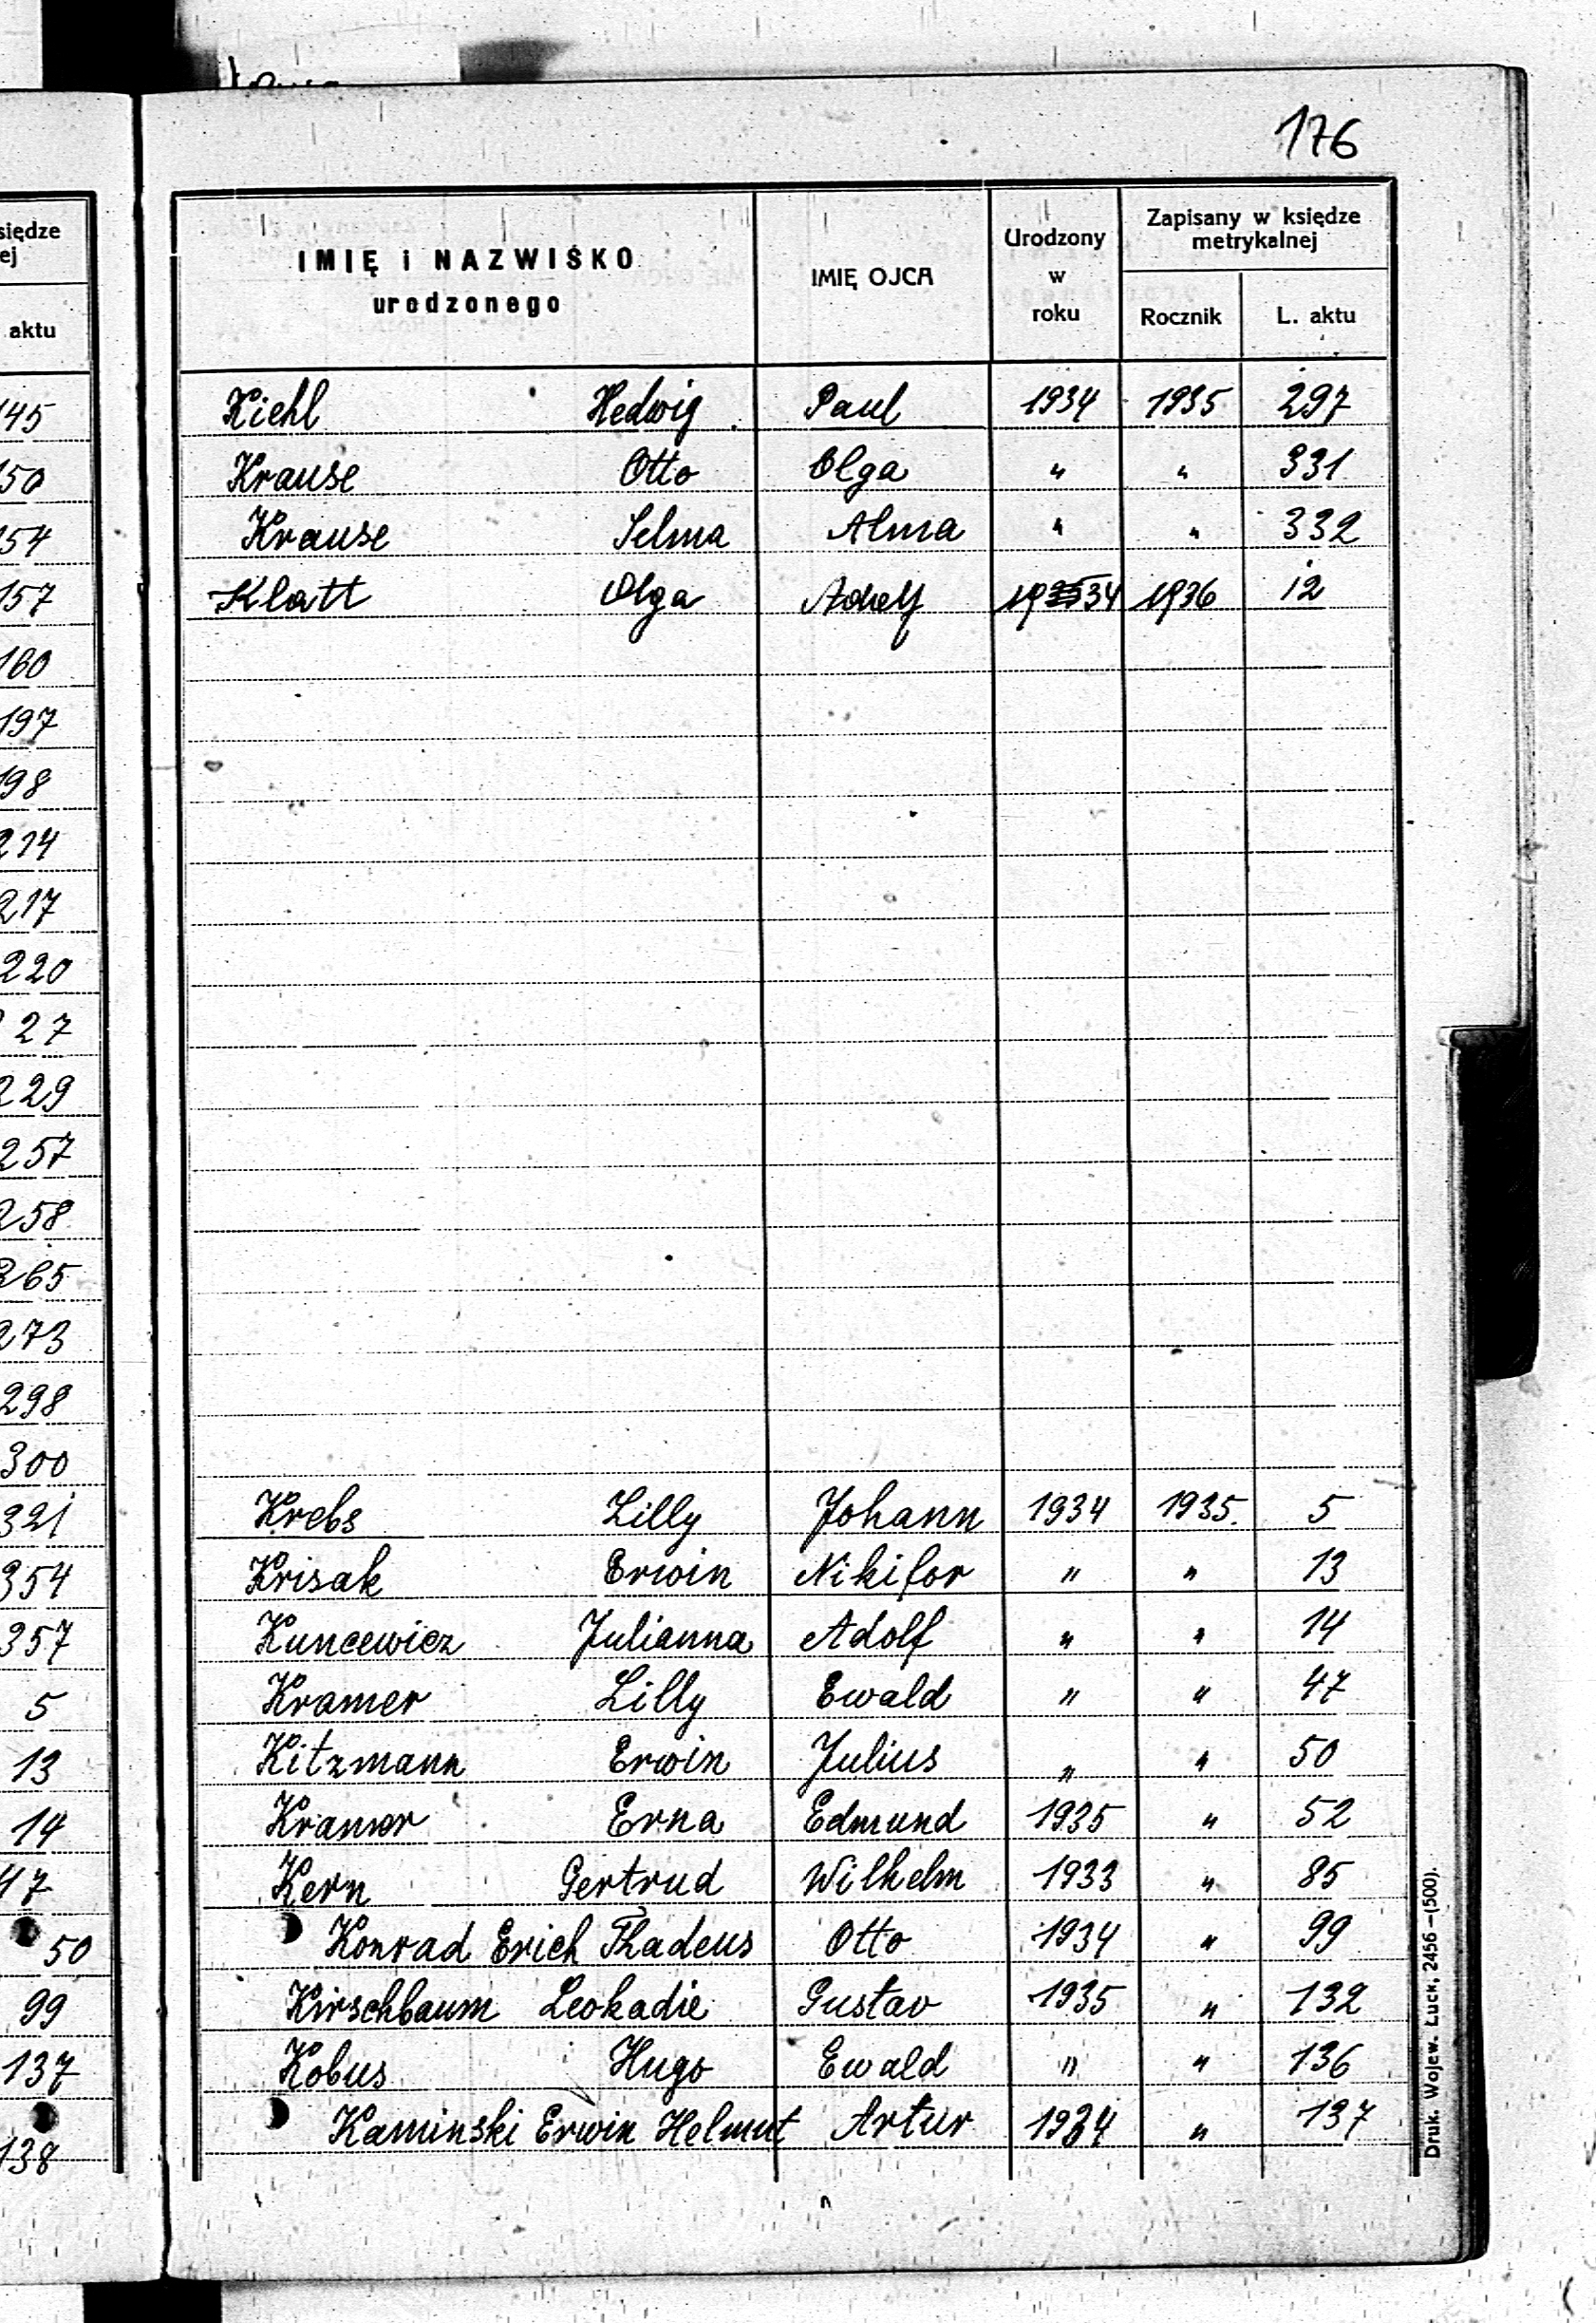 176
siędze
ej
aktu
145
150
154
157
160
197
198
214
217
220
227
229
257
258
265
273
298
300
321
354
357
5
13
14
47
50
99
137
138
IMIĘ i NAZWISKO
urodzonego
IMIĘ OJCA
Urodzony
w
roku
Zapisany w księdze
metrykalnej
Rocznik
L. aktu
Kiehl Hedwig Paul 1934 1935 297
Krause Otto Olga " " 331
Krause Selma Alma " " 332
Klatt Olga Adolf 1934 1936 12
Krebs Lilly Johann 1934 1935. 5
Krisak Erwin Nikifor " " 13
Kuncewicz Julianna Adolf " " 14
Kramer Lilly Ewald " " 47
Kitzmann Erwin Julius " " 50
Kramer Erna Edmund 1935 " 52
Kern Gertrud Wilhelm 1933 " 85
Konrad Erich Thadeus Otto 1934 " 99
Kirschbaum Leokadie Gustav 1935 " 132
Kobus Hugo Ewald " " 136
Kaminski Erwin Helmut Artur 1934 " 137
Druk. Wojew. Łuck, 2456 —(500).